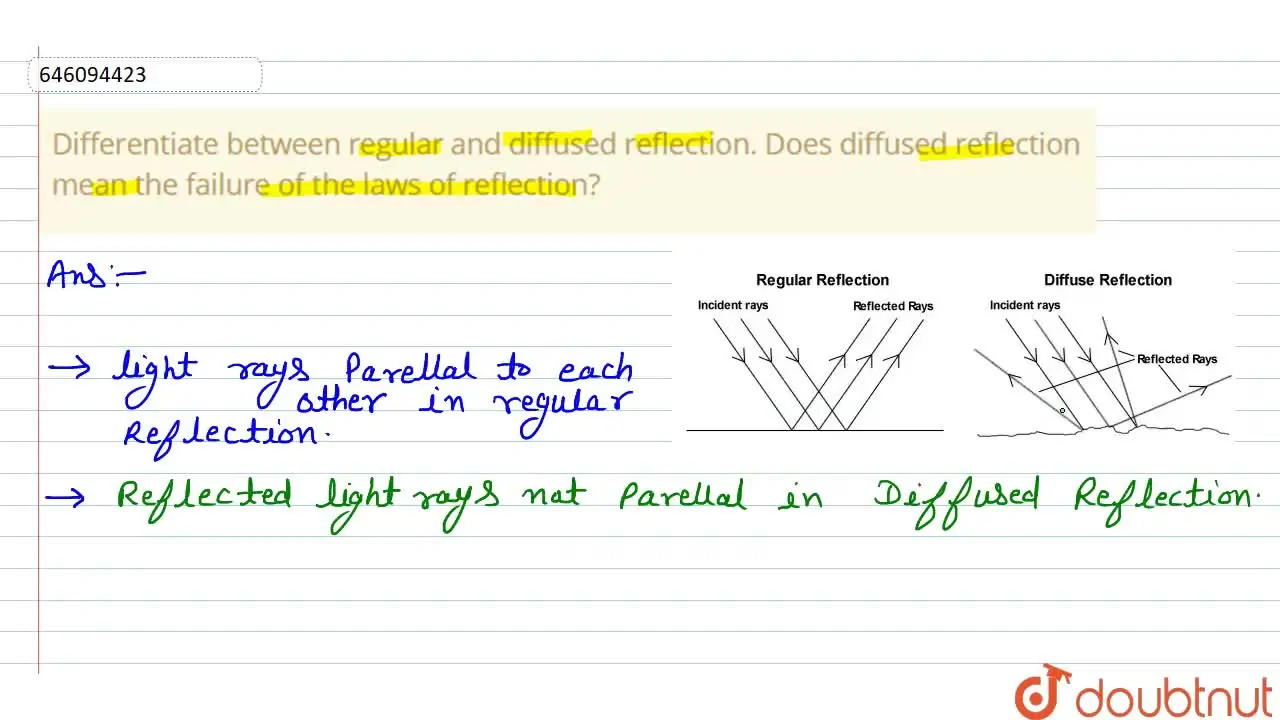 646094423
Differentiate between regular and diffused reflection. Does diffused reflection
mean the failure of the laws of reflection?
Ans:-
Regular Reflection
Incident rays
Reflected Rays
Diffuse Reflection
Incident rays
Reflected Rays
→ light rays Parellal to each
other in regular
Reflection.
→ Reflected light rays not Parellal in Diffused Reflection.
doubtnut